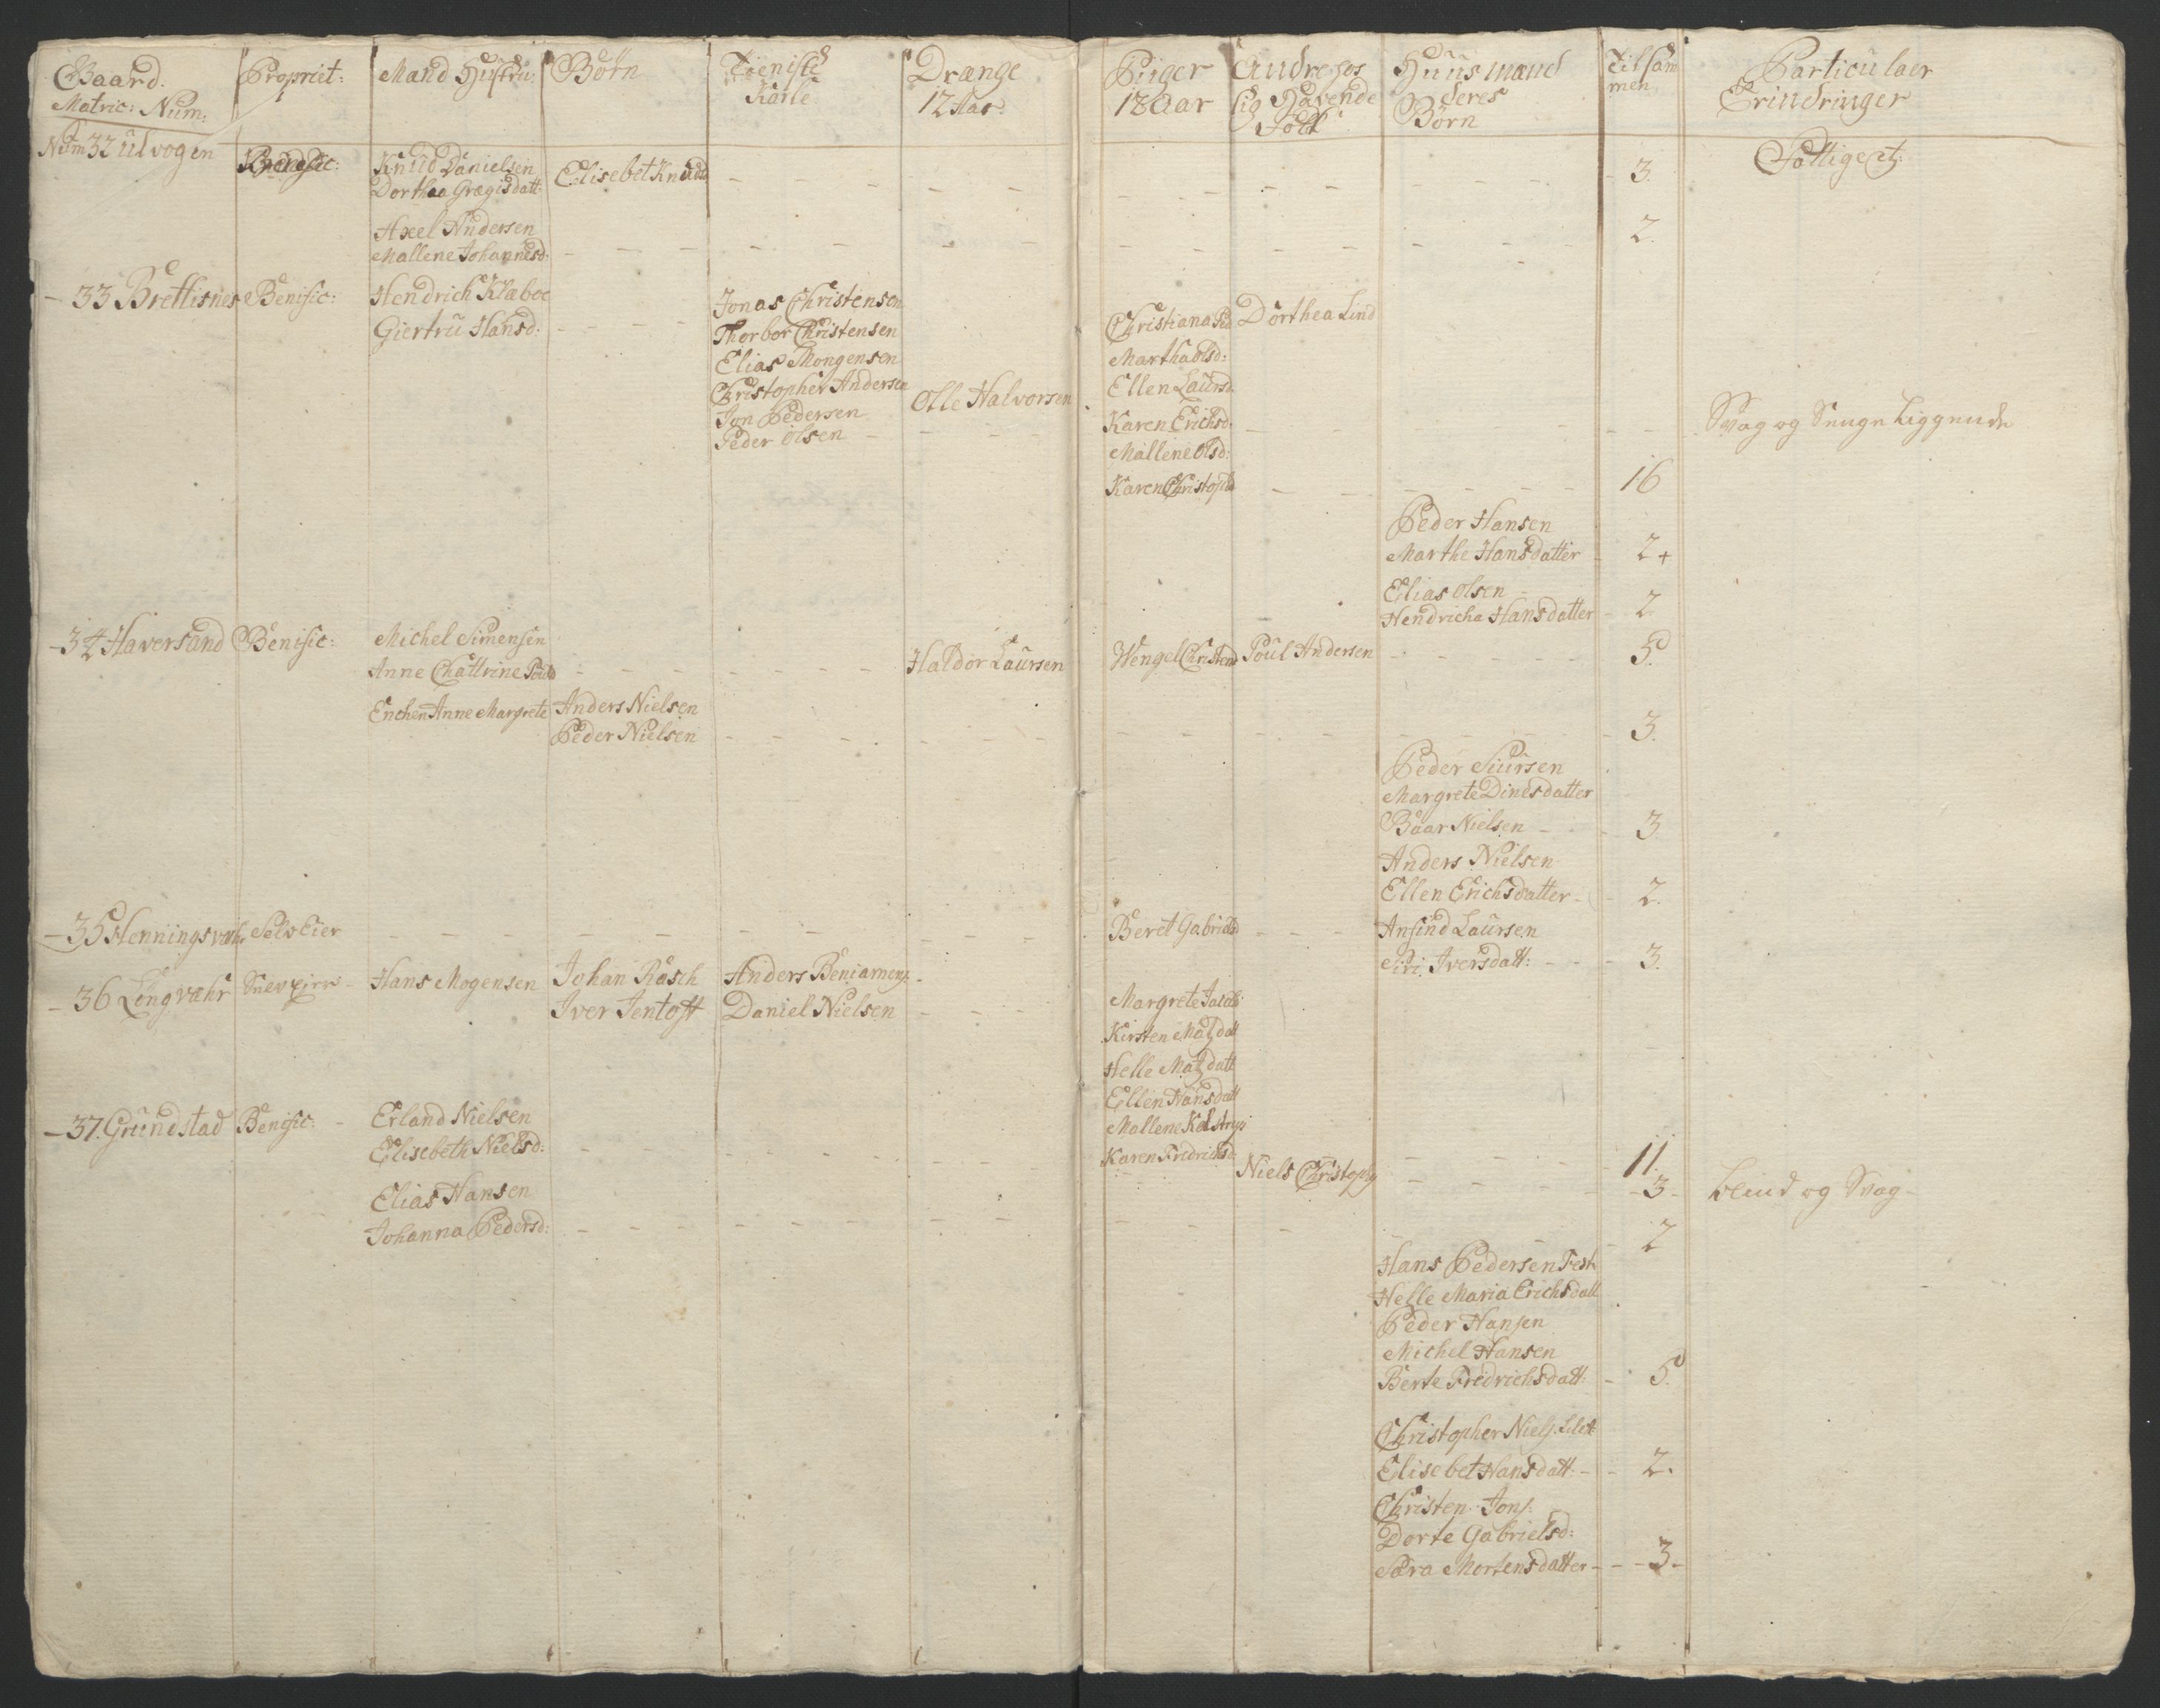 Gaard. Propriet: Mand Hustru: Börn Tieniste Drænge Piiger Andre hos Huusmænd Tilsam Particulaer
Matric: Num: Karle 12 Aar 12 Aar sig Havende deres men Erindringer
Folk Börn
Num 32 Ulvogen Benific: Knud Danielsen Elisebet Knudd 3. Fattige
Dorthea Gregisdatt:
Axel Andersen 2.
Mallene Johannesd:
- 33 Brettisnes Benific: Hendrich Klæboe Jonas Christensen Christiana Ped Dorthea Lind
Giertru Hansd: Thorbor Christensen Martha Olsd:
Elias Mongensen Ellen Laursd.
Christopher Andersen Olle Halvorsen Karen Erichsd. Svag og Senge Liggende
Jon Pedersen Mallene Olsd:
Peder Olsen Karen Christopd 16
Peder Hansen
Marthe Hansdatter 2+
Elias Olsen
Hendricha Hansdatter 2
- 34 Haversand Benific: Michel Simensen Haldor Laursen Wengel Christend Poul Andersen 5.
Anne Chattrine Pould
Enchen Anne Margrete Anders Nielsen
Peder Nielsen 3.
Peder Siursen
Margrete Dinesdatter
Baar Nielsen 3
Anders Nielsen
Ellen Erichsdatter 2.
- 35 Henningsvæhr Selv Eier Beret Gabrields Laursen
Siri Iversdatt: 3.
- 36 Lengvæhr Hans Mogensen Johan Rasch Anders Beniamens:
Iver Jentoft Daniel Nielsen Margrete Jacobs
Kirsten Matzdatt
Helle Matzdatt
Ellen Hansdatt
- 37. Grundstad Benific: Erland Nielsen Mallene
Elisebeth Nielsd: Karen Fredrichsd 11.
Elias Hansen Niels Christophs 3 Blind og Svag
Johanna Pedersd: 2
Hans Pedersen
Helle Maria Erichsdatt
Peder Hansen
Michel Hansen
Berte Fredrichsdatt: 5.
Christopher Niels.
Elisebet Hansdatt: 2.
Christen Jons.
Dorte Gabrielsd:
Sara Mortensdatter 3